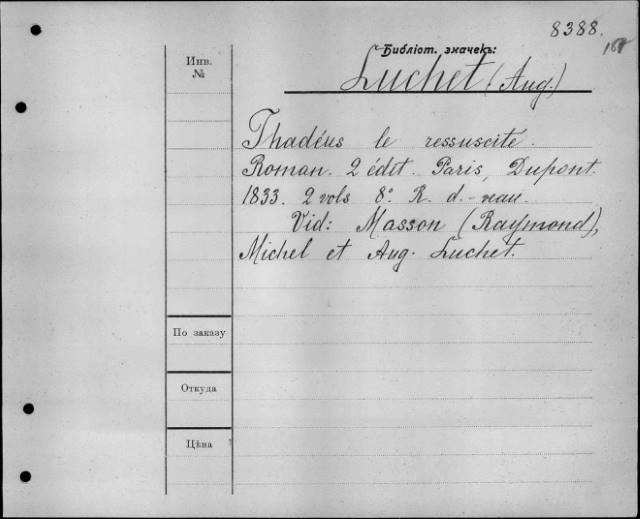 8388.
Библіот. значекъ:
Luchet (Aug.)
Инв.
№
Thadéus le ressuscité.
Roman. 2 édit. Paris, Dupont.
1833. 2 vols 8º R. d.-veau.
Vid: Masson (Raymond),
Michel et Aug. Luchet.
По заказу
Откуда
Цѣна